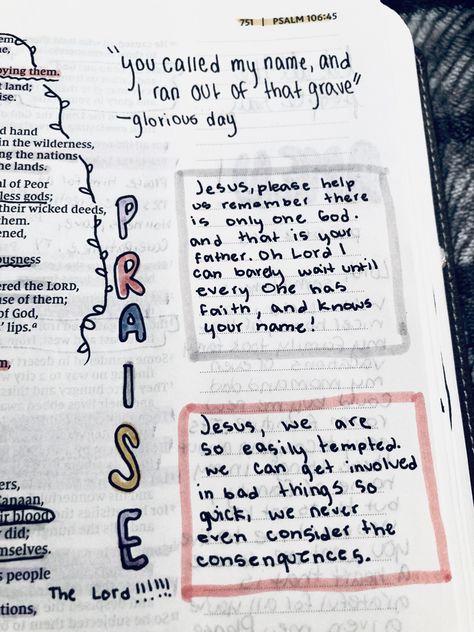 751 | PSALM 106:45
"you called my name, and
I ran out of that grave"
—glorious day
oying them.
land;
ise.
d hand
in the wilderness,
ng the nations
he lands.
al of Peor
less gods;
their wicked deeds,
them.
ened,
ousness
ered the LORD,
use of them;
of God,
' lips.ᵃ
m,
ers,
Canaan,
ir blood
did;
mselves.
s people
tions,
PRAISE
The Lord!!!!!!
Jesus, please help
us remember there
is only one God.
and that is your
Father. Oh Lord I
can barely wait until
every one has
Faith, and knows
your name!
Jesus, we are
so easily tempted.
we can get involved
in bad things so
quick, we never
even consider the
consequences.